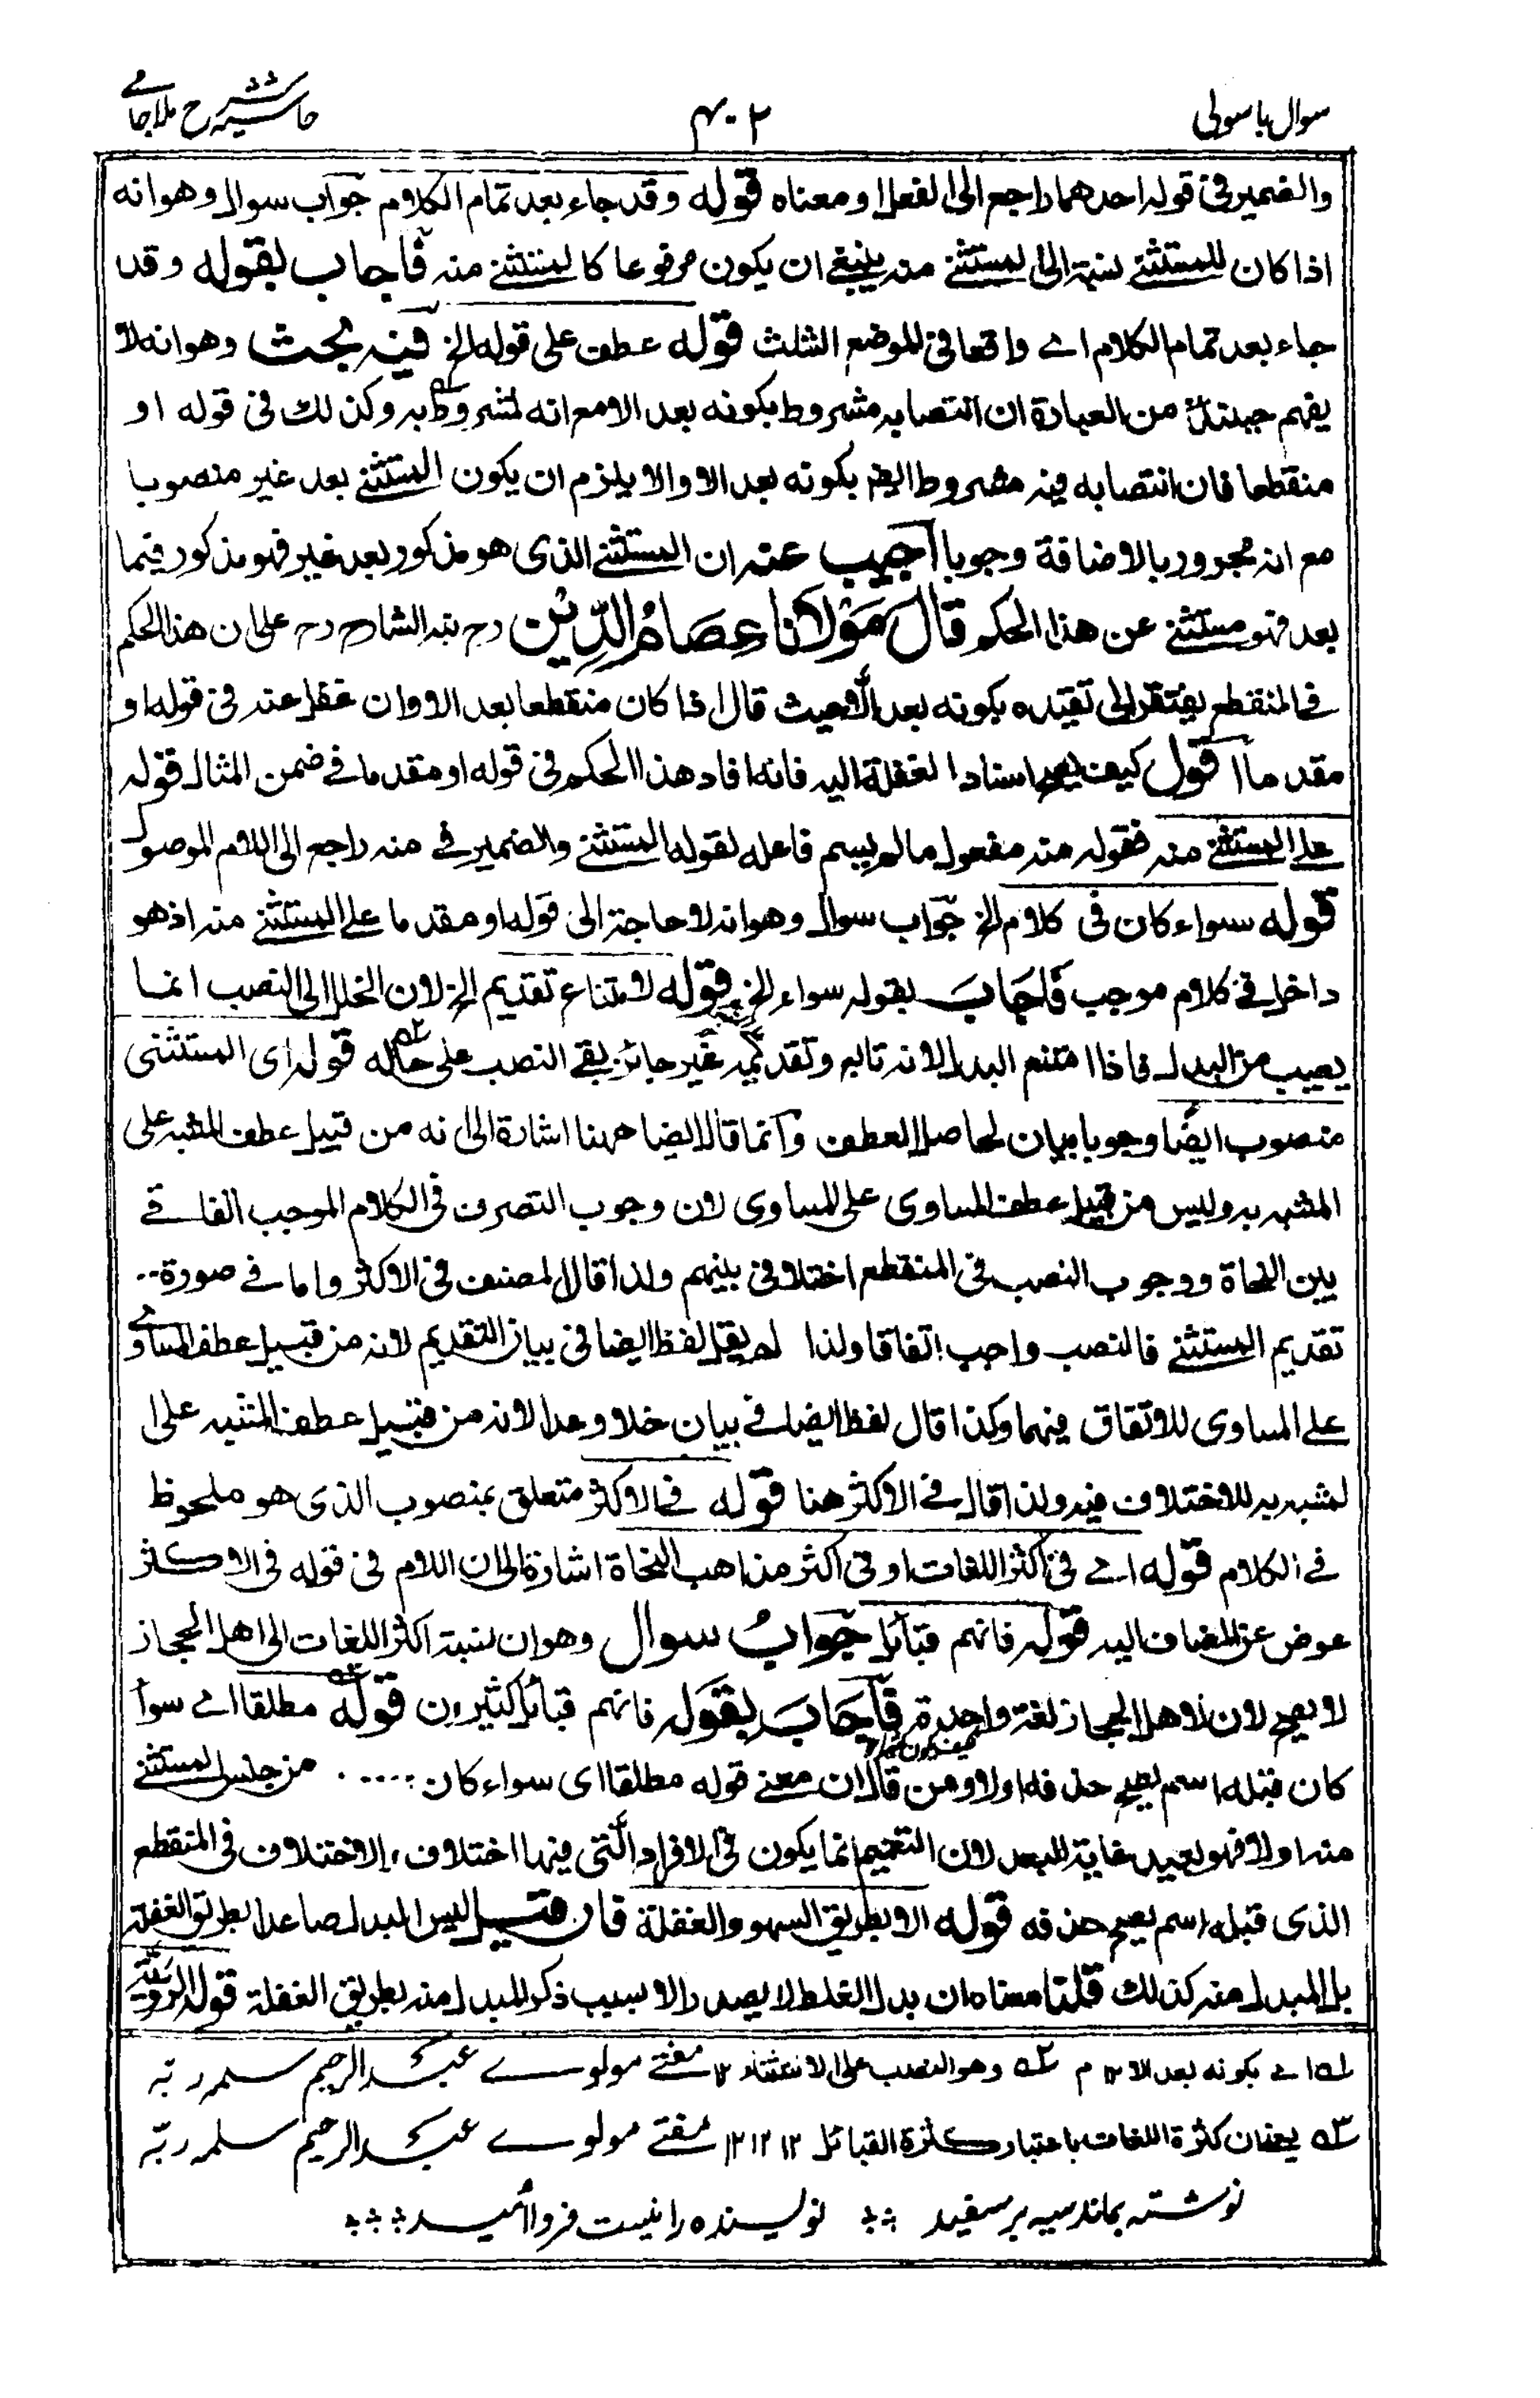 سوال باسولی
۴۰۲
حاشیہ شرح ملا جامی
والضمیر فی قولہ احدهما راجع الی الفعل او معناه قوله وقد جاء بعد تمام الکلام جواب سوال وهو انه
اذا کان للمستثنے نسبة الی المستثنے منه ینبغے ان یکون مرفوعا کالمستثنے منه فاجاب بقوله وقد
جاء بعد تمام الکلام اے واقعا فی الموضع الثلث قوله عطف علی قوله الخ فیه بحث وهو انه لا
یفهم حینئذ من العبارة ان انتصابه مشروط بکونه بعد الا مع انه مشروط به وکذلك فی قوله او
منقطعا فان انتصابه فیه مشروط ایضا بکونه بعد الا والا یلزم ان یکون المستثنے بعد غیر منصوبا
مع انه مجرور بالاضافة وجوبا اجیب عنه ان المستثنے الذی هو مذکور بعد غیر فهو مذکور فیما
بعد فهو مستثنے عن هذا الحکم قَالَ مَوْلَانَا عِصَامُ الدِّیْن رح نبه الشارح رح علی ان هذا الحکم
فی المنقطع یفتقر الی تقیده بکونه بعد الا حیث قال اذا کان منقطعا بعد الا وان غفل عنه فی قوله او
مقدما اقول کیف یصح اسناد الغفلة الیه فانه افاد هذا الحکم فی قوله او مقدما فے ضمن المثال قوله
علے المستثنے منه فقوله منه مفعول ما لم یسم فاعله لقوله المستثنے والضمیر فے منه راجع الی اللام الموصول
قوله سواء کان فی کلام الخ جواب سوال وهو انه لا حاجة الی قوله او مقدما علے المستثنے منه اذ هو
داخل فے کلام موجب فَاَجَابَ بقوله سواء الخ قوله لامتناع تقدیم الخ لان الخلل الی النصب انما
یصیب من البدل فاذا امتنع البدل لانه تابع وتقدیمه غیر جائز بقے النصب علی حاله قوله ای المستثنی
منصوب ایضًا وجوبا بیان لحاصل العطف وانما قال ایضا ههنا اشارة الی انه من قبیل عطف المشبه علی
المشبه به ولیس من قبیل عطف المساوی علی المساوی لان وجوب التصرف فی الکلام الموجب اتفاقے
بین النحاة ووجوب النصب فی المنقطع اختلافی بینهم ولذا قال المصنف فی الاکثر واما فے صورة
تقدیم المستثنے فالنصب واجب اتفاقا ولذا لم یقل لفظ ایضا فی بیان التقدیم لانه من قبیل عطف المساوی
علے المساوی للاتفاق فیهما وکذا قال لفظ ایضا فے بیان خلا وعدا لانه من قبیل عطف المشبه علی ا
لمشبه به للاختلاف فیه ولذا قال فے الاکثر هنا قوله فے الاکثر متعلق بمنصوب الذی هو ملحوظ
فے الکلام قوله اے فی اکثر اللغات او فی اکثر مذاهب النحاة اشارة الی ان اللام فی قوله فی الاکثر
عوض عن المضاف الیه قوله فانهم قبائل جوابُ سوال وهو ان نسبة اکثر اللغات الی اهل الحجاز
لا یصح لان لاهل الحجاز لغة واحدة فَاَجَابَ بقوله فانهم قبائل کثیرون قوله مطلقا اے سواء
کان قبله اسم یصح حذفه او لا ومن قال ان معنے قوله مطلقا ای سواء کان ۰۰۰۰ من جنس المستثنے
منه او لا فهو بعید غایة البعد لان التعمیم انما یکون فی الافراد التی فیها اختلاف، الاختلاف فی المنقطع
الذی قبله اسم یصح حذفه قوله الا بطریق السهو والغفلة فان قیل لیس المبدل صاعدا بطریق الغفلة
بل المبدل منه کذلك قلنا معناه ان بدل الغلط لا یصدر الا بسبب ذکر المبدل منه بطریق الغفلة قوله الرویة
لہ اے بکونه بعد الا ۱۲ م ۲ہ وهو النصب علی الاستثناء ۱۲ مفتے مولوے عبد الرحیم سلمہ ربہ
۳ہ یعنی ان کثرة اللغات باعتبار کثرة القبائل ۱۲ ۱۲ ۱۲ مفتے مولوے عبد الرحیم سلمہ ربّہ
نوشتہ بماند سیہ بر سفید ⁘ نویسندہ را نیست فردا امید ⁘⁘